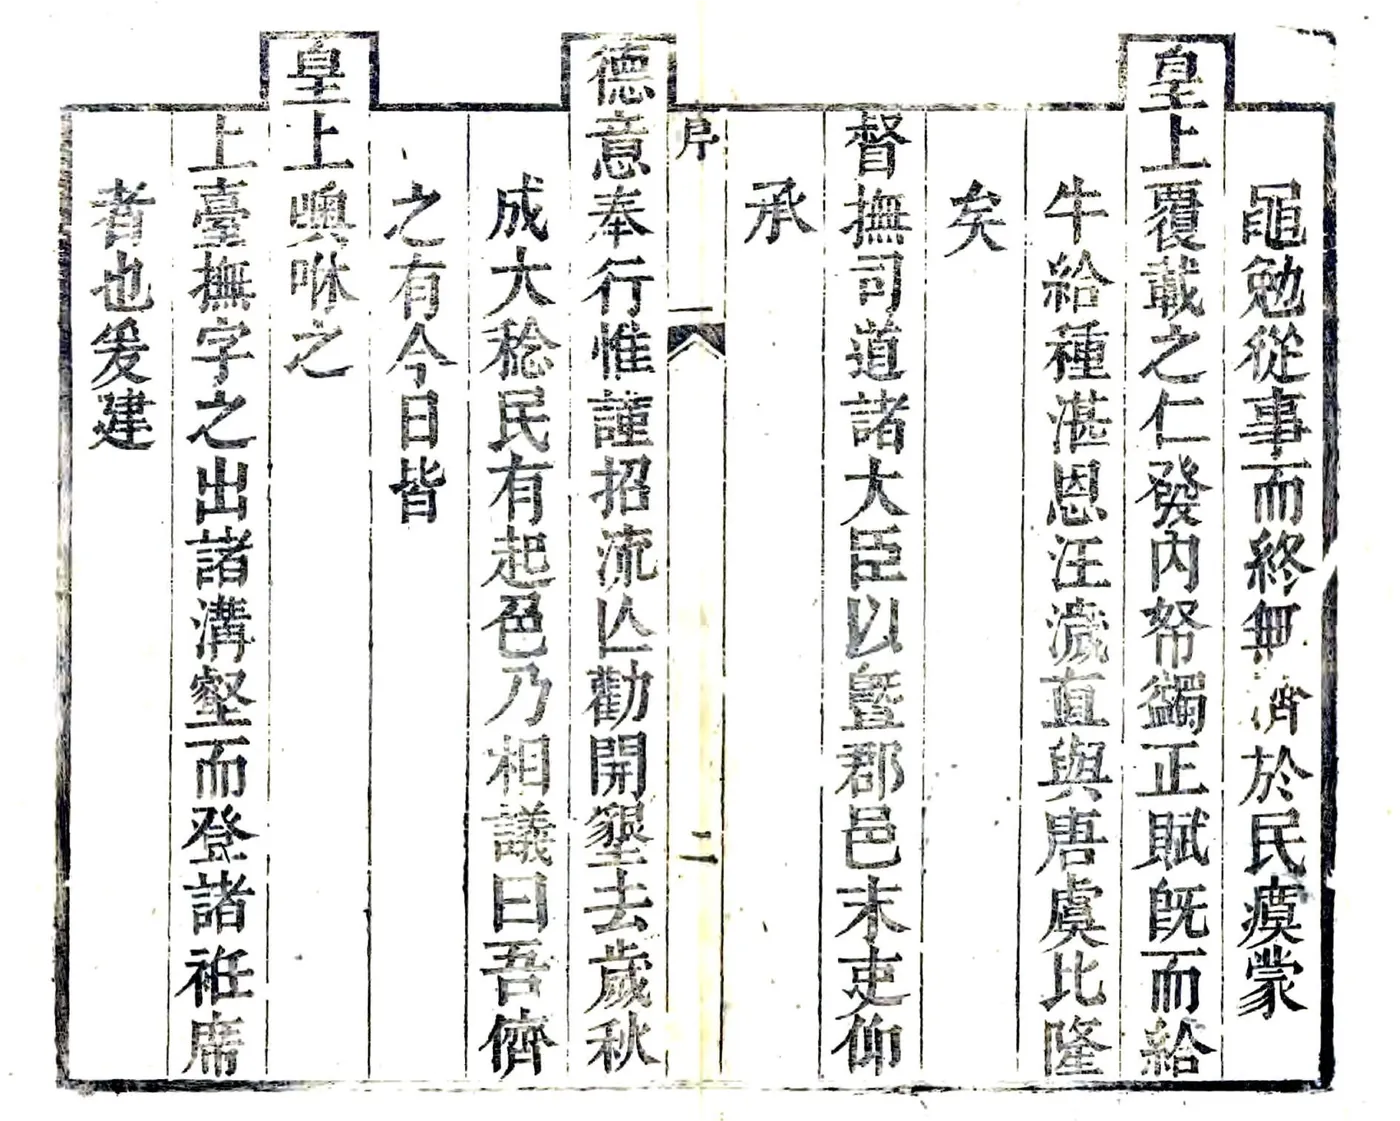 黽勉從事而終無濟於民瘼蒙
皇上覆載之仁發內帑蠲正賦旣而給
牛給種湛恩汪濊直與唐虞比隆
矣
督撫司道諸大臣以曁郡邑末吏仰
承
序 二
德意奉行惟謹招流亾勸開墾去歲秋
成大稔民有起色乃相議曰吾儕
之有今日皆
皇上噢咻之
上臺撫字之出諸溝壑而登諸袵席
者也爰建